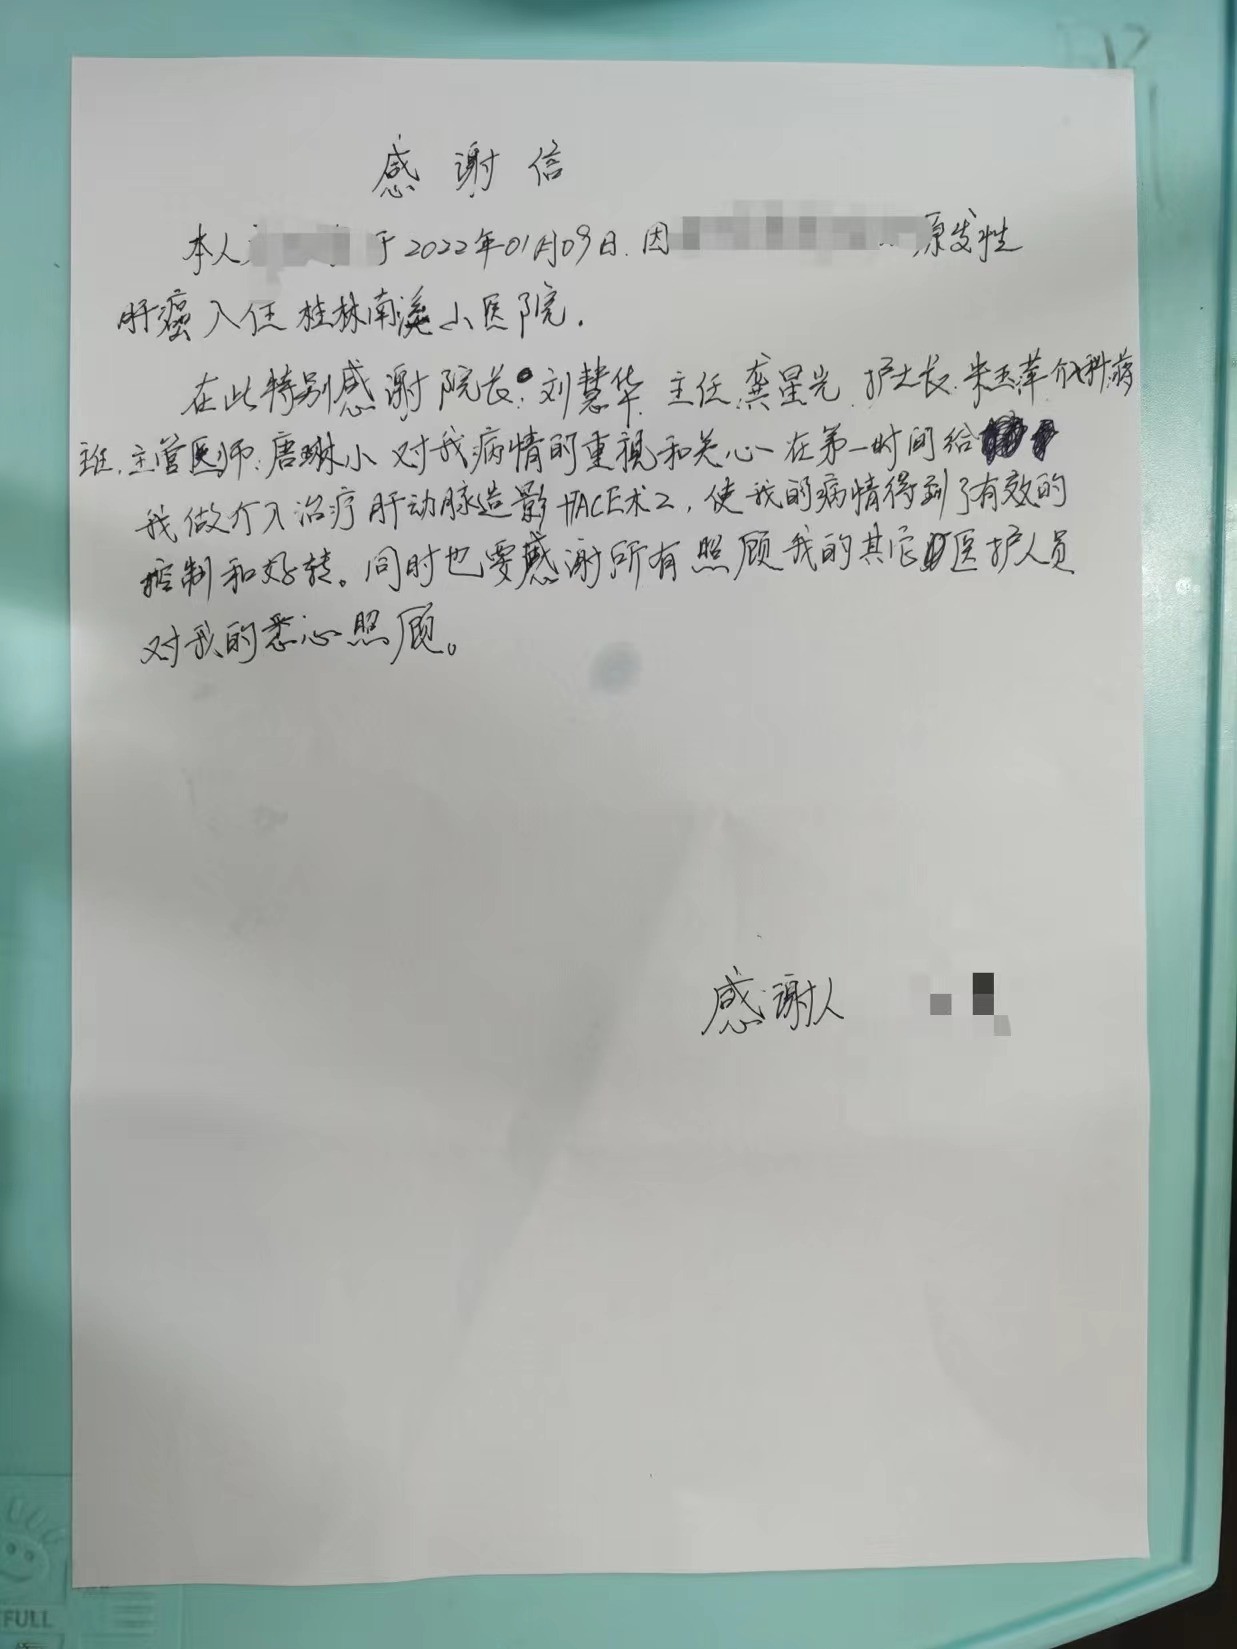 感谢信
本人 于2022年01月09日.因 原发性
肝癌入住桂林南溪山医院.
在此特别感谢院长:刘慧华 主任 龚星光 护士长 朱玉萍 介入科
班.主管医师:唐琳小 对我病情的重视和关心 在第一时间给
我做介入治疗 肝动脉造影 TACE术 , 使我的病情得到了有效的
控制和好转。同时也要感谢所有照顾我的其它医护人员
对我的悉心照顾。
感谢人
FULL